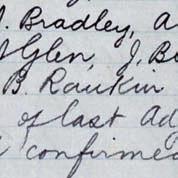 J. Bradley, A
Glen, J. B
B. Rankin
of last Ad
confirmed